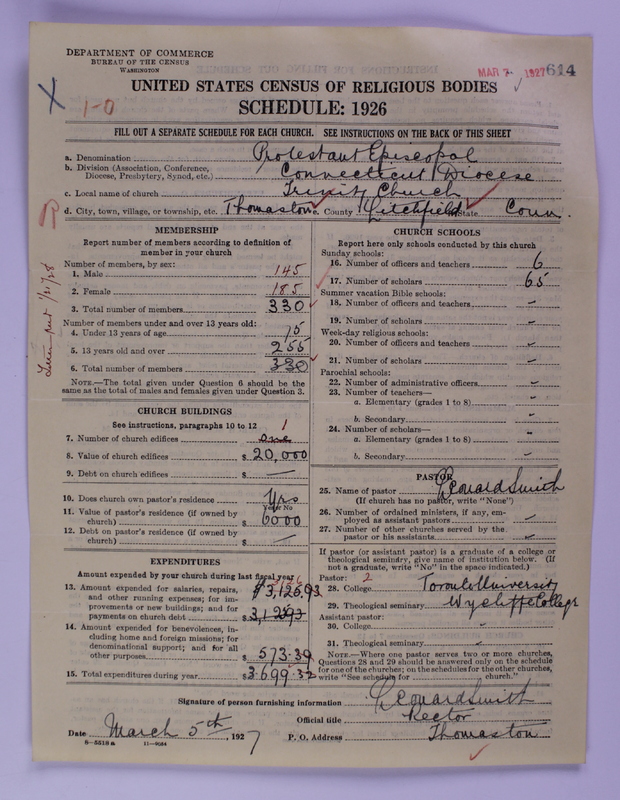 DEPARTMENT OF COMMERCE
BUREAU OF THE CENSUS
WASHINGTON
MAR 7 1927 614
X 1-0
UNITED STATES CENSUS OF RELIGIOUS BODIES
SCHEDULE: 1926
FILL OUT A SEPARATE SCHEDULE FOR EACH CHURCH. SEE INSTRUCTIONS ON THE BACK OF THIS SHEET
a. Denomination Protestant Episcopal
b. Division (Association, Conference,
Diocese, Presbytery, Synod, etc.) Connecticut Diocese
c. Local name of church Trinity Church
d. City, town, village, or township, etc. Thomaston e. County Litchfield State Conn.
MEMBERSHIP
Report number of members according to definition of
member in your church
Number of members, by sex:
1. Male 145
2. Female 185
3. Total number of members 330
Number of members under and over 13 years old:
4. Under 13 years of age 75
5. 13 years old and over 255
6. Total number of members 330
NOTE.—The total given under Question 6 should be the
same as the total of males and females given under Question 3.
CHURCH BUILDINGS
See instructions, paragraphs 10 to 12 1
7. Number of church edifices One
8. Value of church edifices $ 20,000
9. Debt on church edifices $ —
10. Does church own pastor's residence Yes
Yes or No
11. Value of pastor's residence (if owned by
church) $ 6000
12. Debt on pastor's residence (if owned by
church) $ —
EXPENDITURES
Amount expended by your church during last fiscal year
13. Amount expended for salaries, repairs,
and other running expenses; for im-
provements or new buildings; and for
payments on church debt
14. Amount expended for benevolences, in-
cluding home and foreign missions; for
denominational support; and for all
other purposes $ 573.39
15. Total expenditures during year $ 3699.32
CHURCH SCHOOLS
Report here only schools conducted by this church
Sunday schools:
16. Number of officers and teachers 6
17. Number of scholars 65
Summer vacation Bible schools:
18. Number of officers and teachers —
19. Number of scholars —
Week-day religious schools:
20. Number of officers and teachers —
21. Number of scholars —
Parochial schools:
22. Number of administrative officers —
23. Number of teachers—
a. Elementary (grades 1 to 8) —
b. Secondary —
24. Number of scholars—
a. Elementary (grades 1 to 8) —
b. Secondary —
PASTOR
25. Name of pastor Leonard Smith
(If church has no pastor, write "None")
26. Number of ordained ministers, if any, em-
ployed as assistant pastors —
27. Number of other churches served by the
pastor or his assistants —
If pastor (or assistant pastor) is a graduate of a college or
theological seminary, give name of institution below. (If
not a graduate, write "No" in the space indicated.)
Pastor: 2
28. College Toronto University
29. Theological seminary Wycliffe College
Assistant pastor:
30. College —
31. Theological seminary —
NOTE.—Where one pastor serves two or more churches,
Questions 28 and 29 should be answered only on the schedule
for one of the churches; on the schedules for the other churches,
write "See schedule for church."
Signature of person furnishing information Leonard Smith
Official title Rector
Date March 5th, 1927 P. O. Address Thomaston
8—5518a 11—9084